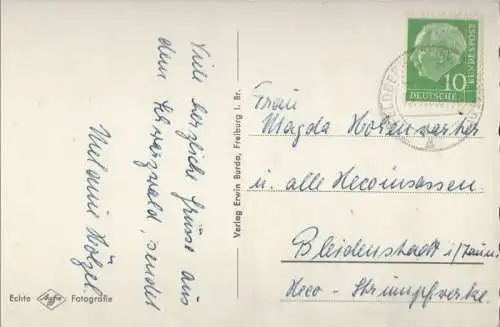 Viele herzliche Grüsse aus
dem Schwarzwald, sendet
Melanie Hölzel
Echte Agfa Fotografie
Verlag Erwin Burda, Freiburg i. Br.
10
DEUTSCHE
BUNDESPOST
Frau
Magda
u. alle Hecoinsassen.
Bleidenstadt i/Taunus
Heco - Strumpfwerke.